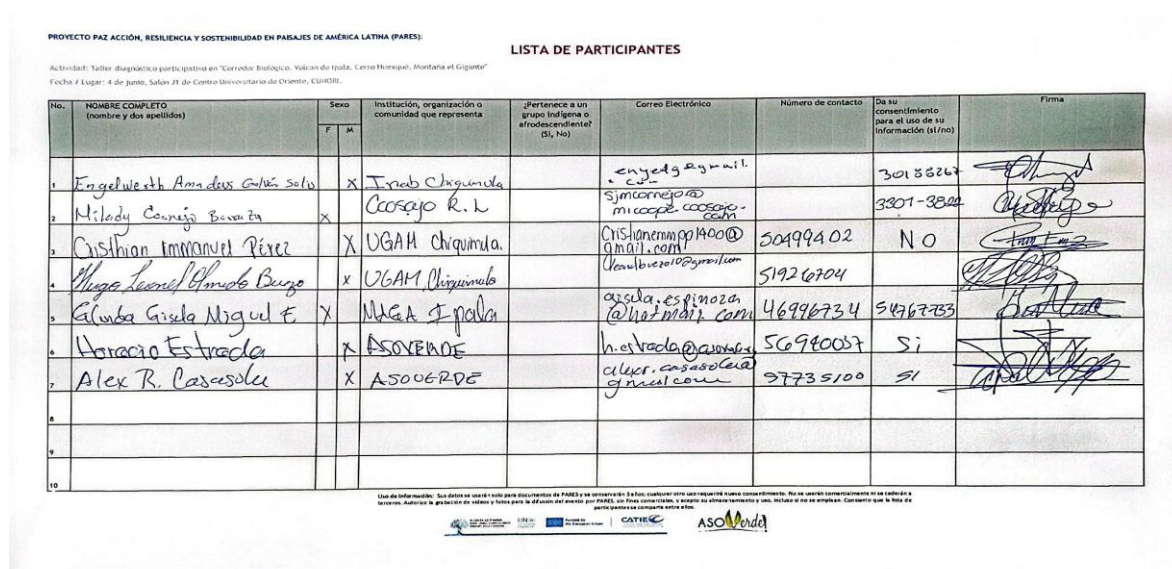 PROYECTO PAZ ACCIÓN, RESILIENCIA Y SOSTENIBILIDAD EN PAISAJES DE AMÉRICA LATINA (PARES):
LISTA DE PARTICIPANTES
Actividad: Taller diagnóstico participativo en "Corredor Biológico, Volcan de Ipala, Cerro Huexqué, Montaña el Gigante"
Fecha / Lugar: 4 de junio, Salón J1 de Centro Universitario de Oriente, CUNORI.
No. NOMBRE COMPLETO (nombre y dos apellidos) Sexo F M Institución, organización o comunidad que representa ¿Pertenece a un grupo indígena o afrodescendiente? (Si, No) Correo Electrónico Número de contacto Da su consentimiento para el uso de su información (si/no) Firma
1 Engelwerth Amadeus Galván Solis X Inab Chiquimula enyedg@gmail.com 30188267
2 Milady Cornejo X Coosajo R.L sjmcornejo@micoope.coosajo.com 3301-3822
3 Cristhian Immanuel Pérez X UGAM Chiquimula. 50499402 NO
4 Hugo Leonel Olmedo X UGAM Chiquimula 51926704
5 Gisela Miguel E X MAGA Ipala gisela.espinoza@hotmail.com 46996734 54767733
6 Horacio Estrada X ASOVERDE 56940057 Si
7 Alex R. Casasola X ASOVERDE alexr.casasola@gmail.com 57735100 SI
8
9
10
Uso de información: Sus datos se usarán solo para documentos de PARES y se conservarán 5 años; cualquier otro uso requerirá nuevo consentimiento. No se usarán comercialmente ni se cederán a
terceros. Autorizo la grabación de videos y fotos para la difusión del evento por PARES, sin fines comerciales, y acepto su almacenamiento y uso, incluso si no se emplean. Consiento que la lista de
participantes se comparta entre ellos.
CATIE ASOVerde